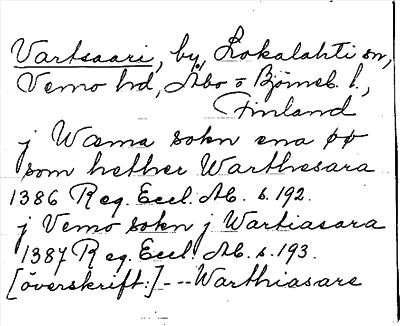 Vartsaari, by, Lokalahti sn,
Vemo hd, Åbo o Björneb. l.,
Finland
j Wæma sokn ena øø
som hether Warthesara
1386 Reg. Eccl. Ab. s. 192.
j Vemo sokn j Wartiasara
1387 Reg. Eccl. Ab. s. 193.
[överskrift:] - - - Warthiasare